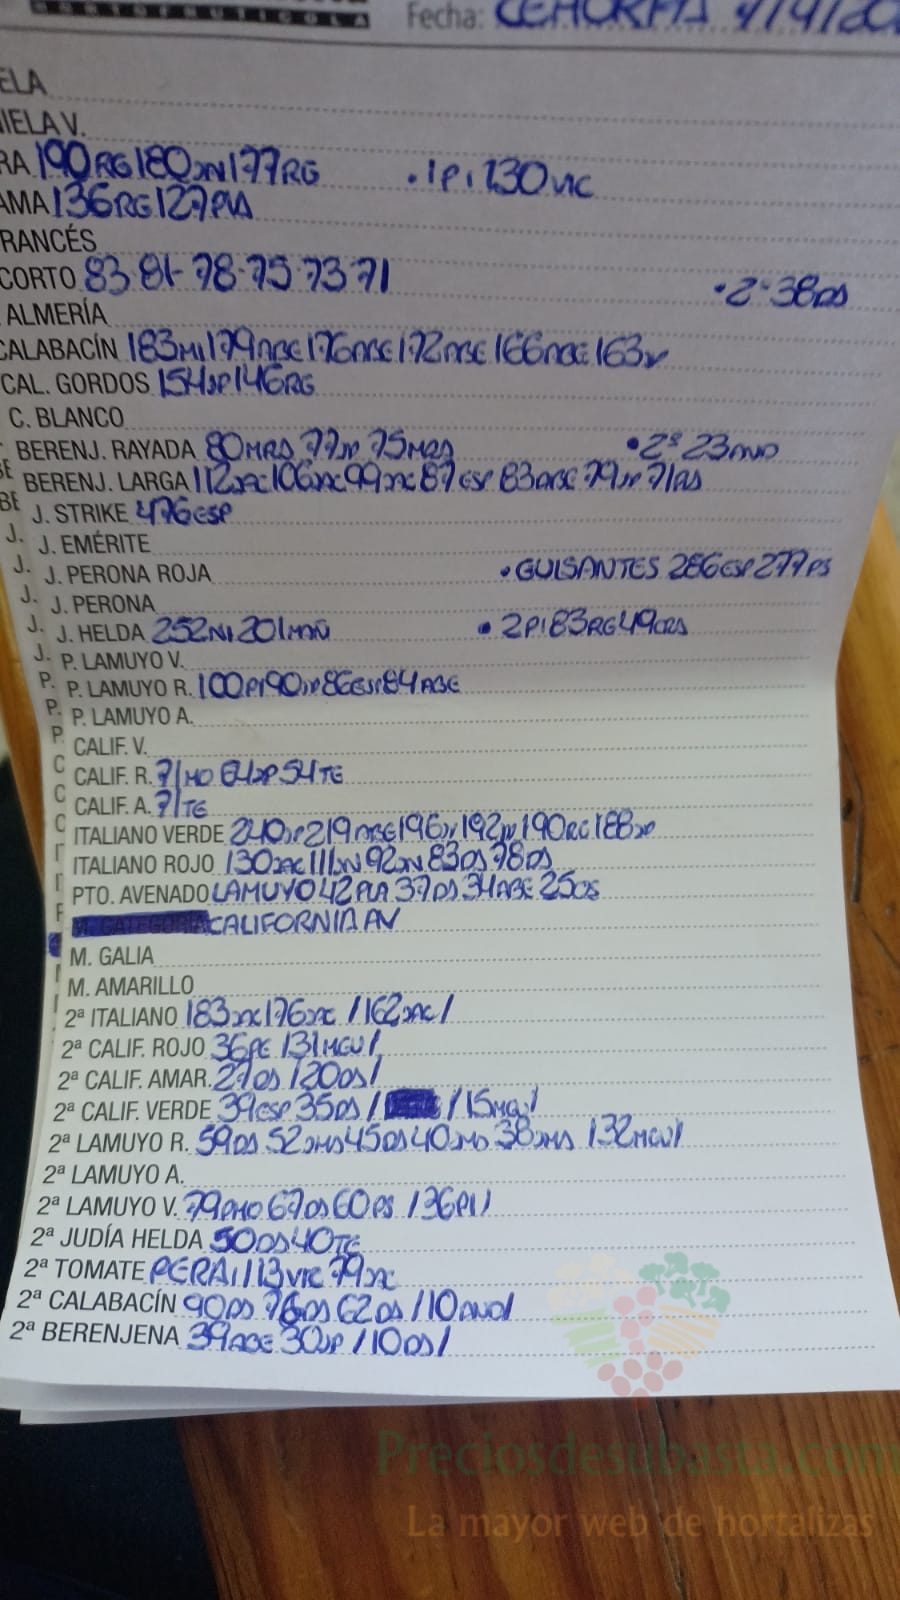 HORTOFRUTÍCOLA Fecha: CEHORPA
ELA
IELA V.
RA 190RG 180JN 177RG • 1P, 130VIC
AMA 136RG 127PLA
RANCÉS
CORTO 83-81-78-75-73-71 • 2ª 38DS
ALMERÍA
CALABACÍN 183MI 179ABE 176ABE 172ABE 166ABE 163
CAL. GORDOS 154JP 146RG
C. BLANCO
BERENJ. RAYADA 80MRS 77JP 75MRS • 2ª 23
BERENJ. LARGA 112 106 99 87ESP 83ABE 79JP 71
J. STRIKE 476ESP
J. EMÉRITE
J. PERONA ROJA • GUISANTES 286ESP 277PS
J. PERONA
J. HELDA 252NI 201 • 2P 183RG 49
P. LAMUYO V.
P. LAMUYO R. 100PI 90 86ESP 84ABE
P. LAMUYO A.
CALIF. V.
CALIF. R. 71MO 64JP 54TE
CALIF. A. 71TE
ITALIANO VERDE 240JP 219ABE 196 192JP 190RG 188JP
ITALIANO ROJO 130 111JN 92JN 83DS 78DS
PTO. AVENADO LAMUYO 42PLA 37DS 34ABE 25DS
CALIFORNIA AV
M. GALIA
M. AMARILLO
2ª ITALIANO 183 176 /162 /
2ª CALIF. ROJO 36PE /31MGU/
2ª CALIF. AMAR. 27DS /20DS/
2ª CALIF. VERDE 39ESP 35DS / /15MGU/
2ª LAMUYO R. 59DS 52 45DS 40 38 /32MGU/
2ª LAMUYO A.
2ª LAMUYO V. 79PMO 67DS 60PS /36PI/
2ª JUDÍA HELDA 50DS 40TE
2ª TOMATE PERA 113VIC 79
2ª CALABACÍN 90DS 76DS 62DS /10 /
2ª BERENJENA 39ABE 30JP /10DS/
Preciosdesubasta.com
La mayor web de hortalizas